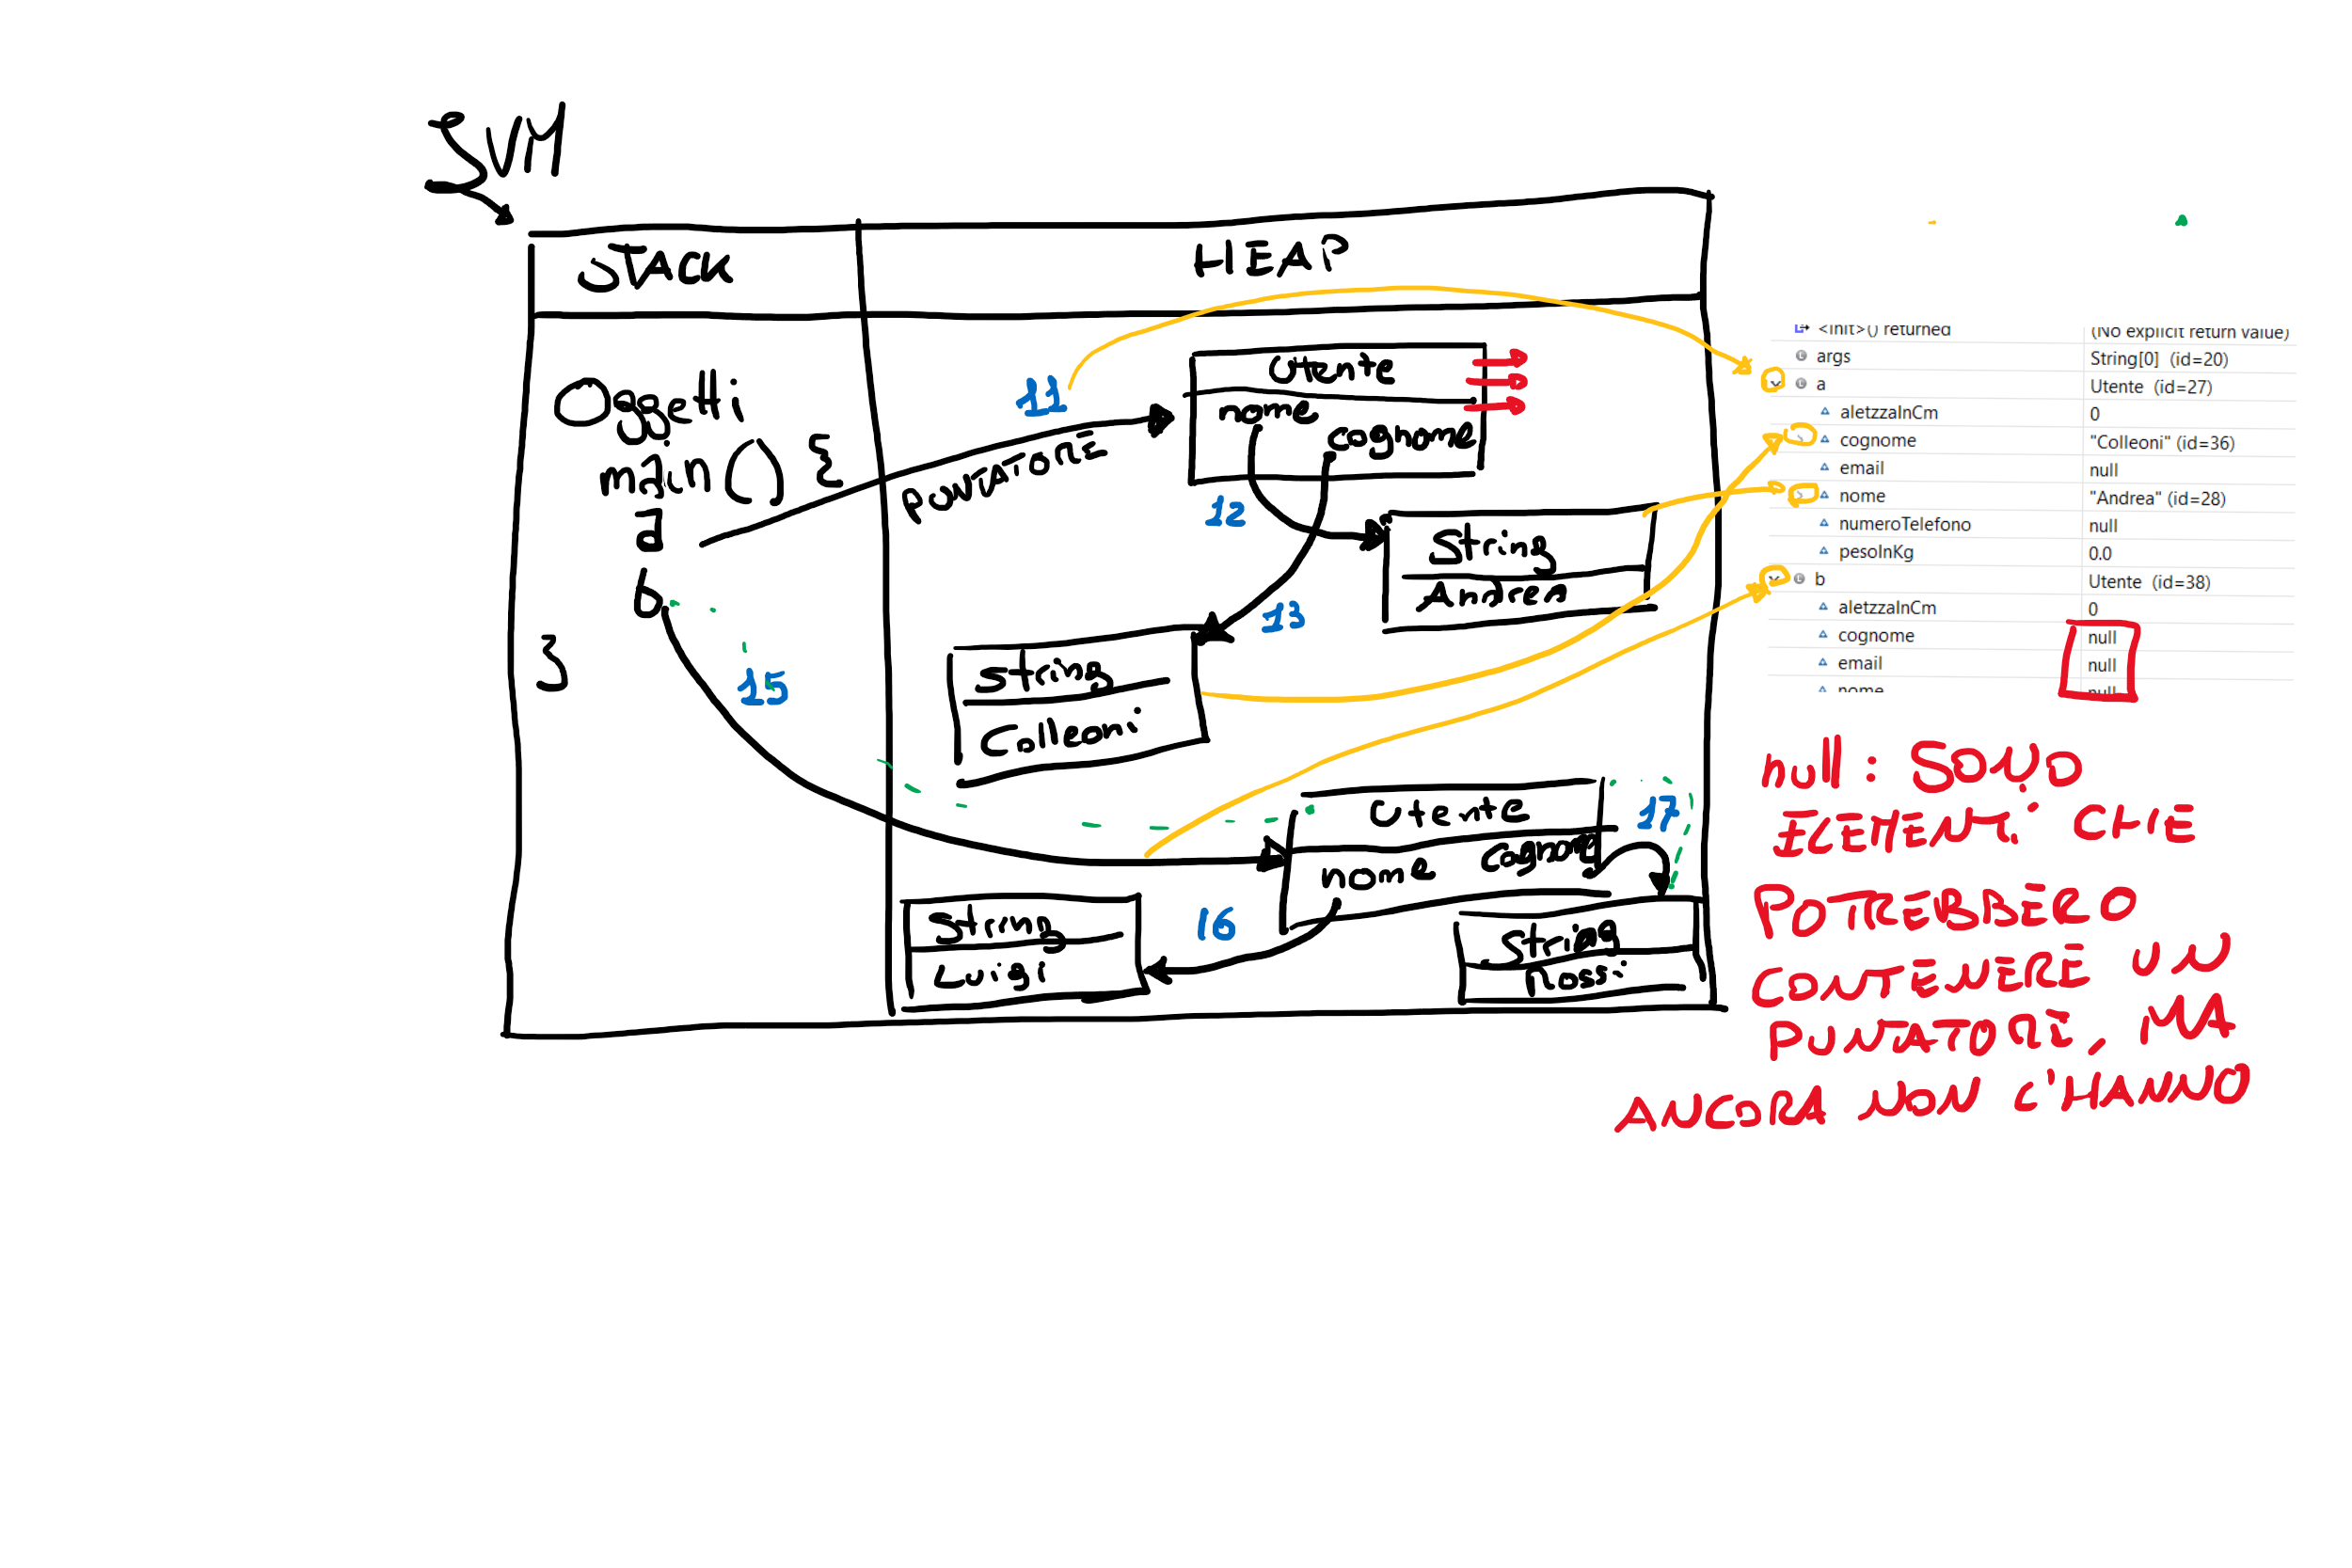 JVM
STACK
HEAP
Oggetti
main() {
a
b
}
PUNTATORE
11
Utente
nome cognome
12
String
Andrea
13
String
Colleoni
15
Utente
nome cognome
16
17
String
Luigi
String
Rossi
<init>() returned (No explicit return value)
args String[0] (id=20)
a Utente (id=27)
aletzzaInCm 0
cognome "Colleoni" (id=36)
email null
nome "Andrea" (id=28)
numeroTelefono null
pesoInKg 0.0
b Utente (id=38)
aletzzaInCm 0
cognome null
email null
nome null
null: SONO
ELEMENTI CHE
POTREBBERO
CONTENERE UN
PUNTATORE, MA
ANCORA NON C'HANNO